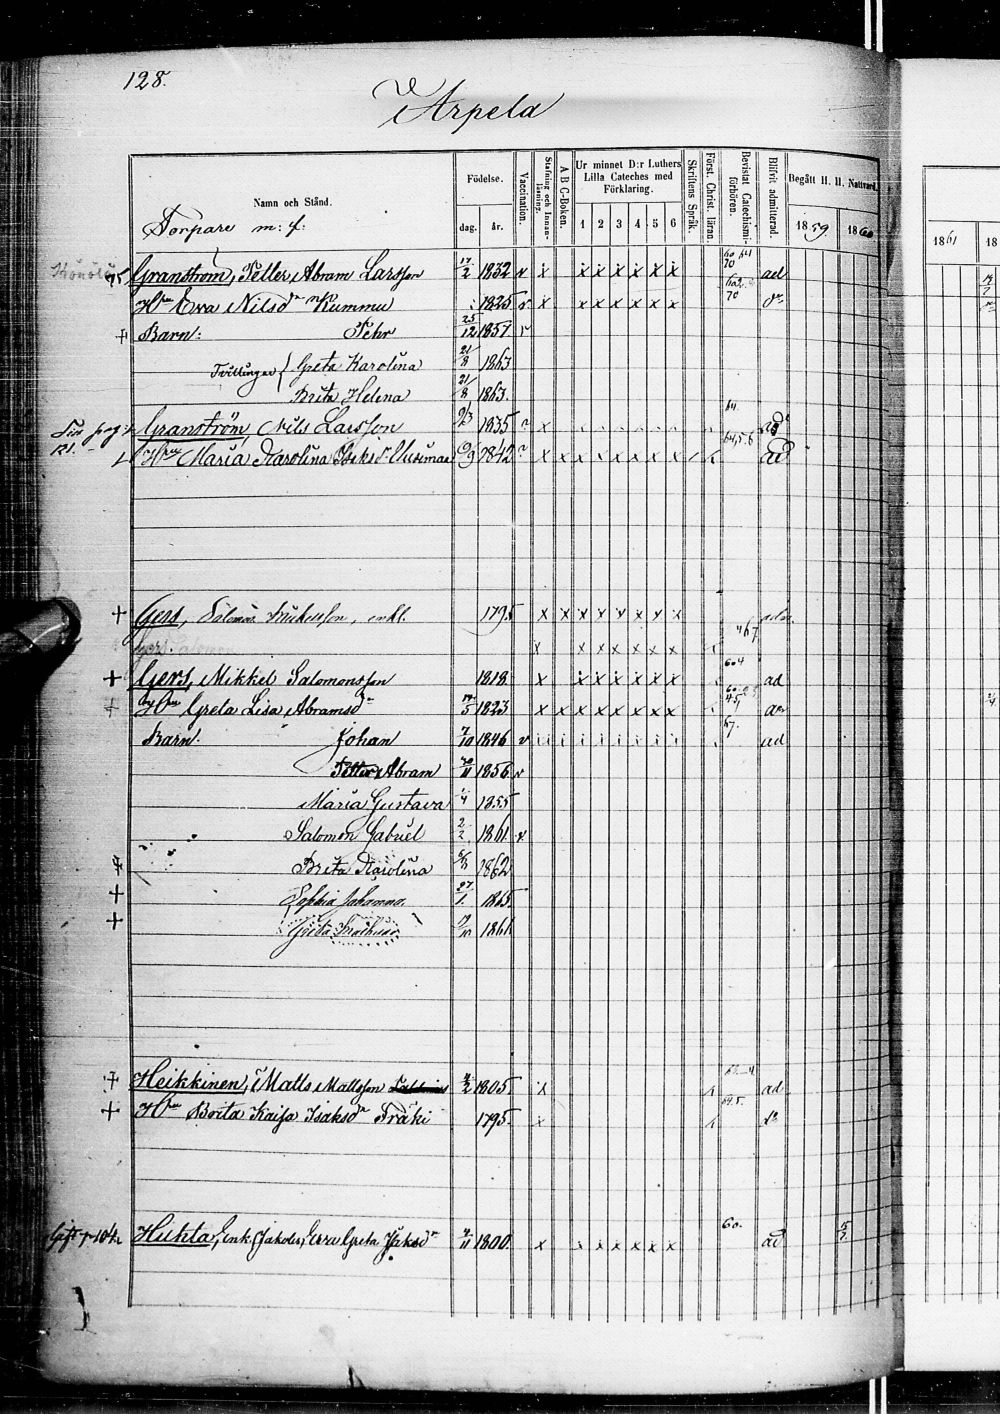 128.
Arpela
Namn och Stånd. Födelse. Vaccination. Stafning och Innanläsning. A B C-Boken. Ur minnet D:r Luthers Lilla Cateches med Förklaring. Skriftens Språk. Först. Christ. läran. Bevistat Catechismiförhören. Blifvit admitterad. Begått H. H. Nattvard.
Torpare m: f: dag. år. 1 2 3 4 5 6 1859 1860 1861 18
Granström, Petter Abram Larsson 17/2 1832 v x x x x x x x 60 61 70 ad
Hu Ewa Nilsdr Kummu 1825 v x x x x x x x 70 do
+ Barn: Pehr 25/12 1857 v
Tvillingar { Greta Karolina 21/8 1863
Brita Helena 21/8 1863.
Granström, Nils Larsson 9/3 1835 64. ad
Hu Maria Karolina Isaksdr Uusimaa 9/9 1842 x x x x x x x x 64,5.6 ad
+ Gers, Salomon Mickelsson, enkl. 1795 x x x x x x x x
Gers. x x x x x x x 67
+ Gers, Mikkel Salomonsson 1818. x x x x x x x 604 ad
+ Hu Greta Lisa Abramsdr 1823 x x x x x x x x
Barn. Johan 7/10 1846 v 67. ad
Petter Abram 20/11 1856 v
Maria Gustava 1855
Salomon Gabriel 2/2 1861 v
+ Brita Karolina 1862
+ Sophia Johanna. 27/1. 1865
+ Greta 1866
+ Heikkinen, Matts Mattsson 4/2 1805. x ad
+ Hu Brita Kaisa Isaksdr Fräki 1795. x 64.5. do
Huhta, Enk. Jakobs, Ewa Greta 4/11 1800. x x x x x x x 60. ad